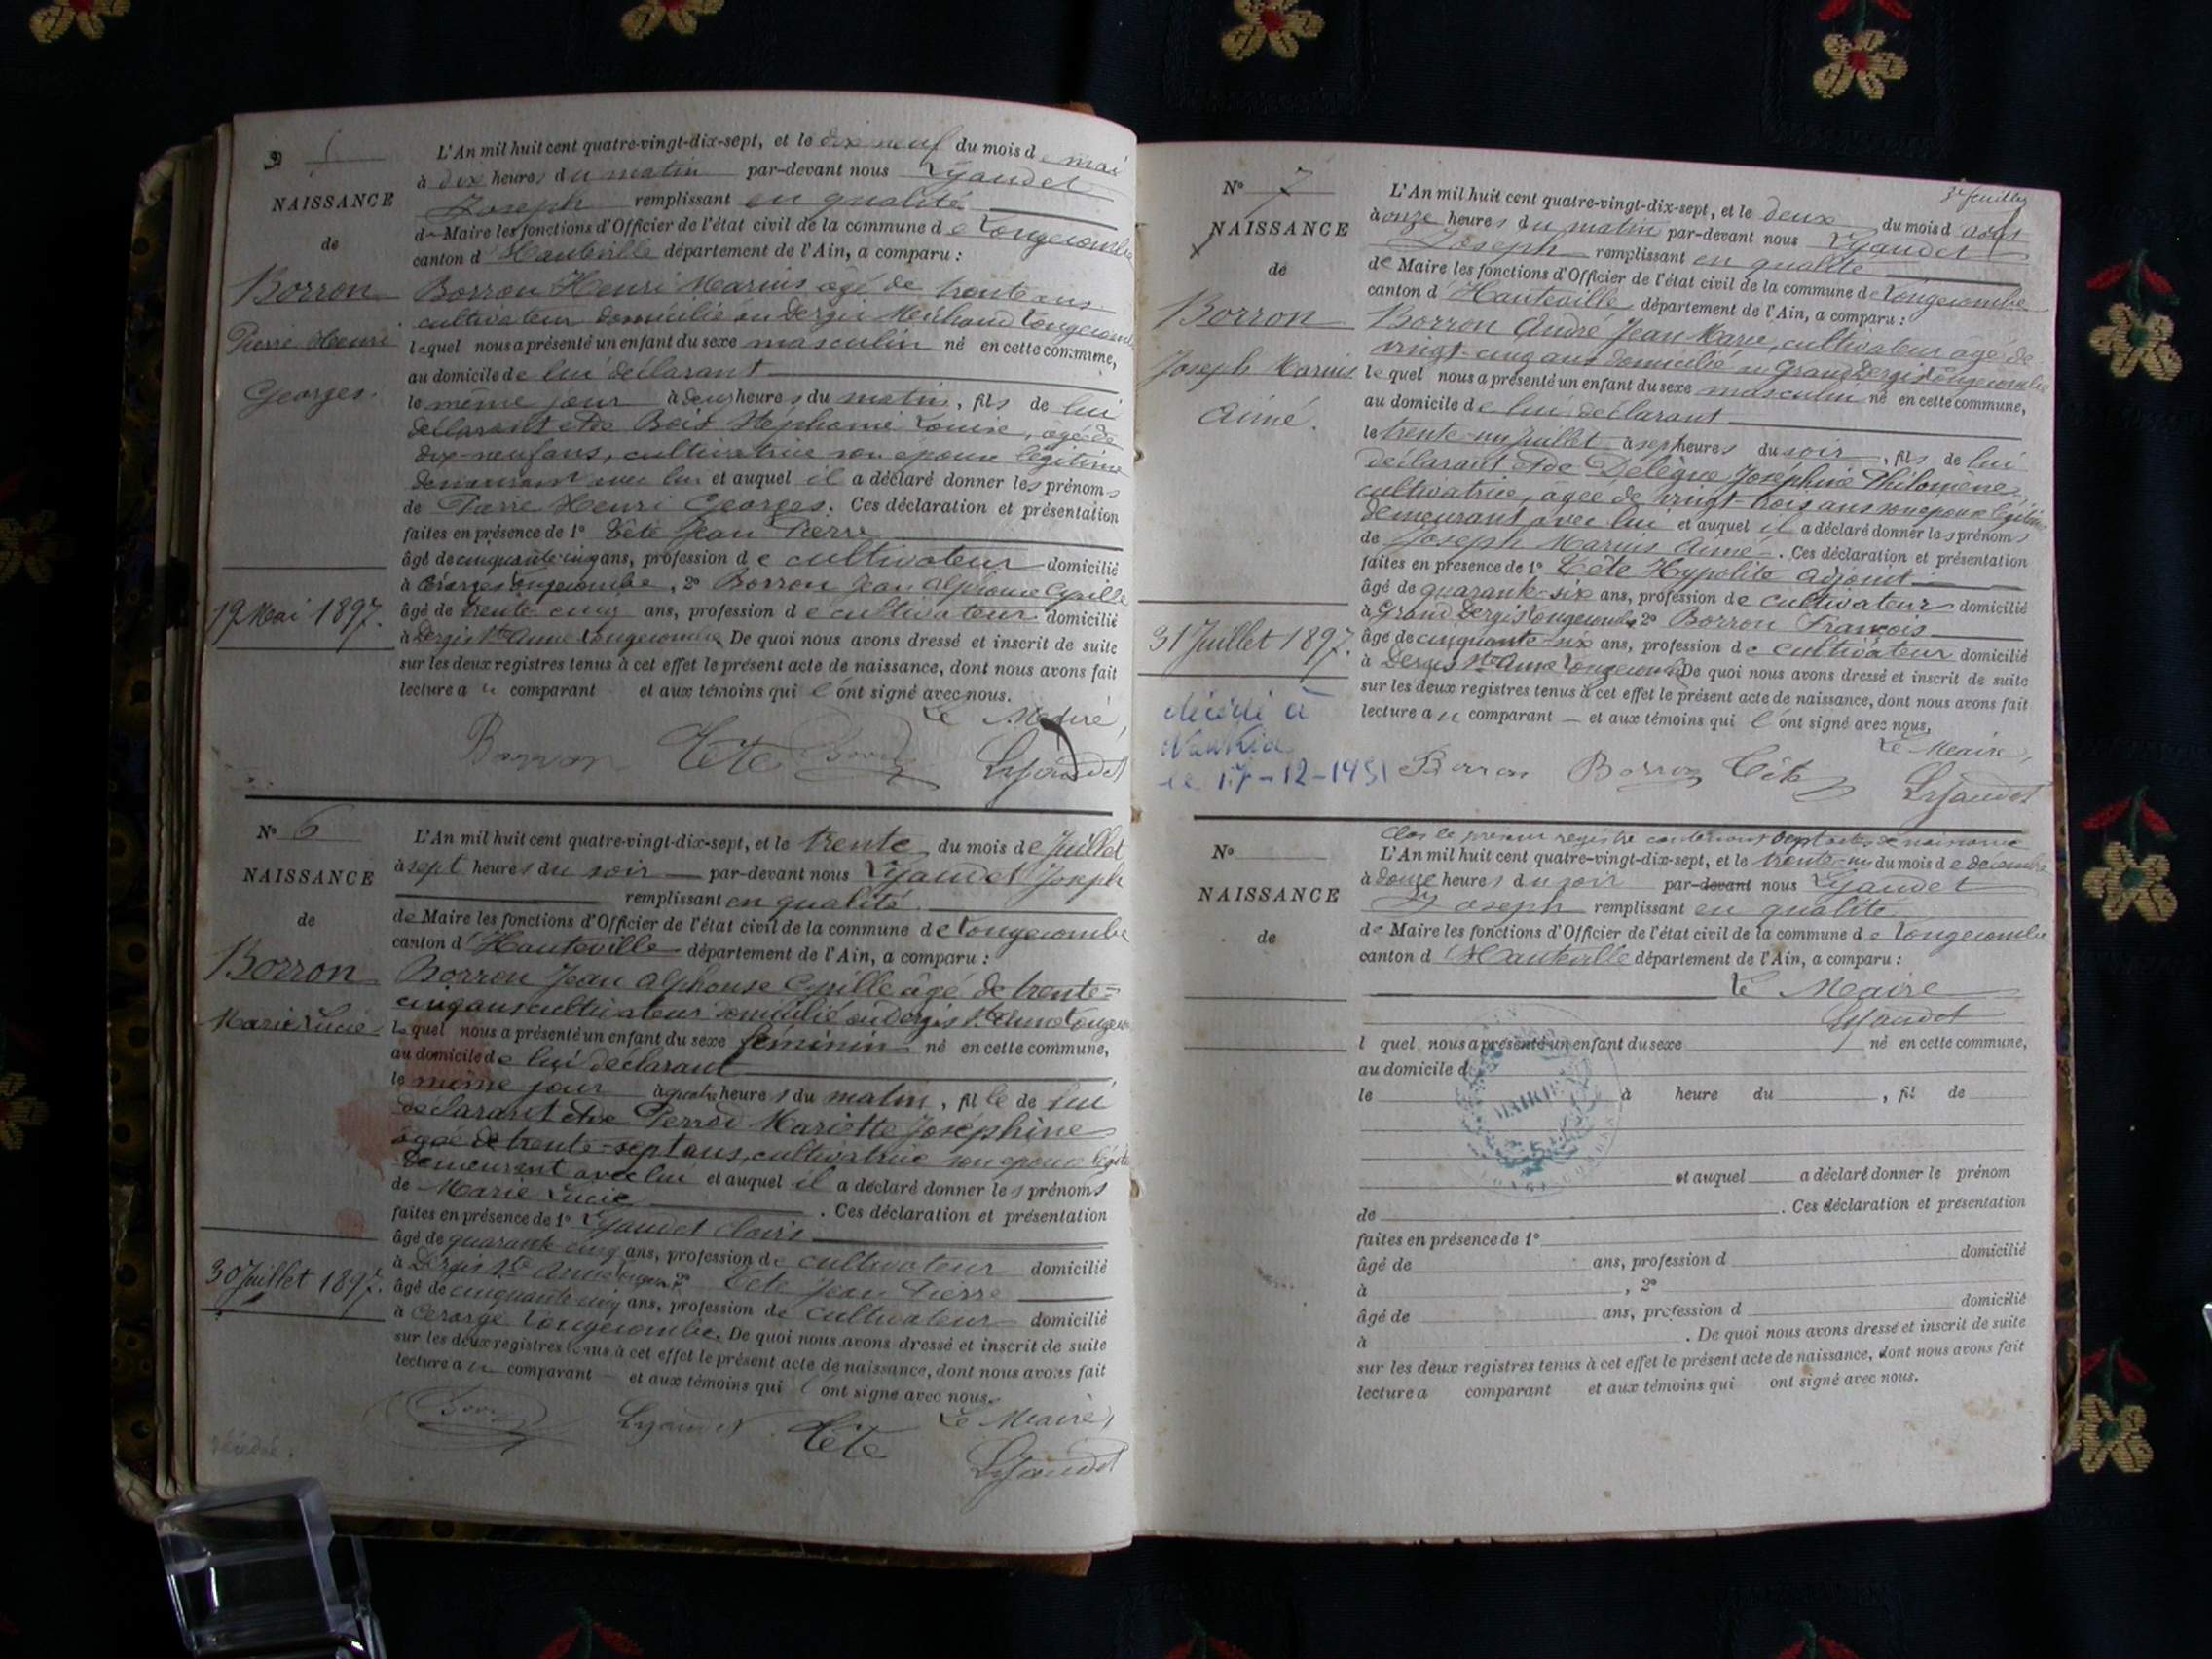 N° 5
NAISSANCE
de
Borron
Pierre Henri
Georges.
19 Mai 1897.
L'An mil huit cent quatre-vingt-dix-sept, et le dix neuf du mois de mai
à dix heures du matin par-devant nous Lyaudet
Joseph remplissant en qualité
de Maire les fonctions d'Officier de l'état civil de la commune de Longecombe
canton d'Hauteville département de l'Ain, a comparu :
Borron Henri Marius âgé de trente ans
cultivateur domicilié au Dergis Michaud Longecombe
lequel nous a présenté un enfant du sexe masculin né en cette commune,
au domicile de lui déclarant
le même jour à deux heures du matin, fils de lui
déclarant et de Bois Stéphanie Louise, âgée de
dix-neuf ans, cultivatrice son épouse légitime
demeurant avec lui et auquel il a déclaré donner les prénoms
de Pierre Henri Georges. Ces déclaration et présentation
faites en présence de 1° Tête Jean Pierre
âgé de cinquante cinq ans, profession de cultivateur domicilié
à Longecombe, 2° Borron Jean Alphonse Cyrille
âgé de trente cinq ans, profession de cultivateur domicilié
à Dergis Ste Anne Longecombe De quoi nous avons dressé et inscrit de suite
sur les deux registres tenus à cet effet le présent acte de naissance, dont nous avons fait
lecture au comparant et aux témoins qui l'ont signé avec nous.
Le Maire,
Borron Tête Borron Lyaudet
N° 6
NAISSANCE
de
Borron
Marie Lucie
30 Juillet 1897.
L'An mil huit cent quatre-vingt-dix-sept, et le trente du mois de Juillet
à sept heures du soir par-devant nous Lyaudet Joseph
remplissant en qualité
de Maire les fonctions d'Officier de l'état civil de la commune de Longecombe
canton d'Hauteville département de l'Ain, a comparu :
Borron Jean Alphonse Cyrille âgé de trente-
cinq ans cultivateur domicilié au Dergis Ste Anne Longecombe
lequel nous a présenté un enfant du sexe féminin né en cette commune,
au domicile de lui déclarant
le même jour à quatre heures du matin, fille de lui
déclarant et de Perrod Mariette Joséphine
âgée de trente-sept ans, cultivatrice son épouse légitime
demeurant avec lui et auquel il a déclaré donner les prénoms
de Marie Lucie. Ces déclaration et présentation
faites en présence de 1° Lyaudet Clovis
âgé de quarante cinq ans, profession de cultivateur domicilié
à Dergis Ste Anne Longecombe 2° Tête Jean Pierre
âgé de cinquante cinq ans, profession de cultivateur domicilié
à Longecombe. De quoi nous avons dressé et inscrit de suite
sur les deux registres tenus à cet effet le présent acte de naissance, dont nous avons fait
lecture au comparant et aux témoins qui l'ont signé avec nous.
Le Maire,
Borron Lyaudet Tête Lyaudet
N° 7
NAISSANCE
de
Borron
Joseph Marius
Aimé.
31 Juillet 1897.
décédé à
le 17-12-1951
L'An mil huit cent quatre-vingt-dix-sept, et le deux du mois d'août
à onze heures du matin par-devant nous Lyaudet
Joseph remplissant en qualité
de Maire les fonctions d'Officier de l'état civil de la commune de Longecombe
canton d'Hauteville département de l'Ain, a comparu :
Borron André Jean-Marie, cultivateur âgé de
vingt-cinq ans domicilié au Grand Dergis Longecombe
lequel nous a présenté un enfant du sexe masculin né en cette commune,
au domicile de lui déclarant
le trente-un juillet à sept heures du soir, fils de lui
déclarant et de Délègue Joséphine Philomène
cultivatrice, âgée de vingt-trois ans son épouse légitime
demeurant avec lui et auquel il a déclaré donner les prénoms
de Joseph Marius Aimé. Ces déclaration et présentation
faites en présence de 1° Tête Hypolite adjoint
âgé de quarante-six ans, profession de cultivateur domicilié
à Grand Dergis Longecombe 2° Borron François
âgé de cinquante-six ans, profession de cultivateur domicilié
à Dergis Ste Anne Longecombe De quoi nous avons dressé et inscrit de suite
sur les deux registres tenus à cet effet le présent acte de naissance, dont nous avons fait
lecture au comparant et aux témoins qui l'ont signé avec nous.
Le Maire,
Borron Borron Tête Lyaudet
N°
NAISSANCE
de
Clos le présent registre contenant sept actes de naissance
L'An mil huit cent quatre-vingt-dix-sept, et le trente-un du mois de décembre
à douze heures du soir par-devant nous Lyaudet
Joseph remplissant en qualité
de Maire les fonctions d'Officier de l'état civil de la commune de Longecombe
canton d'Hauteville département de l'Ain, a comparu :
Le Maire
Lyaudet
l quel nous a présenté un enfant du sexe né en cette commune,
au domicile d
le à heure du , fil de
MAIRIE
et auquel a déclaré donner le prénom
de . Ces déclaration et présentation
faites en présence de 1°
âgé de ans, profession d domicilié
à , 2°
âgé de ans, profession d domicilié
à . De quoi nous avons dressé et inscrit de suite
sur les deux registres tenus à cet effet le présent acte de naissance, dont nous avons fait
lecture a comparant et aux témoins qui ont signé avec nous.